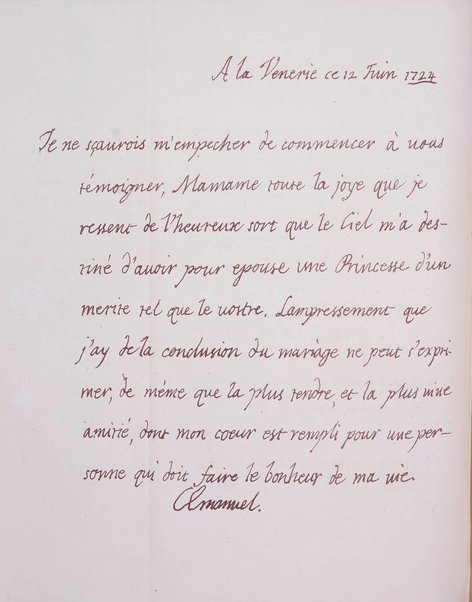 A la Venerie ce 12 Juin 1724
Je ne sçaurois m'empecher de commencer à vous
témoigner, Mamame toute la joye que je
ressent de l'heureux sort que le Ciel m'a des-
tiné d'avoir pour epouse une Princesse d'un
merite tel que le vostre. Lampressement que
j'ay de la conclusion du mariàge ne peut s'expri-
mer, de méme que la plus tendre, et la plus vive
amitié, dont mon coeur est rempli pour une per-
sonne qui doit faire le bonheur de ma vie.
Emanuel.